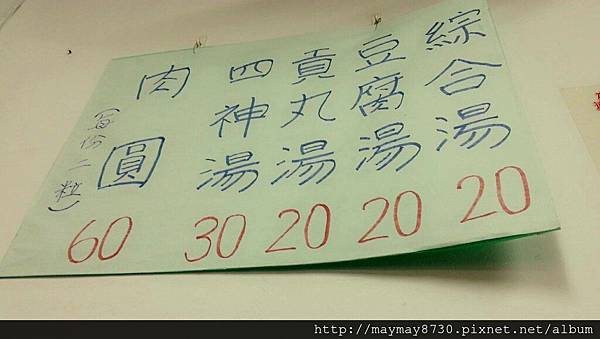 綜合湯 20
豆腐湯 20
貢丸湯 20
四神湯 30
肉圓 60
(每份二粒)
http://maymay8730.pixnet.net/album